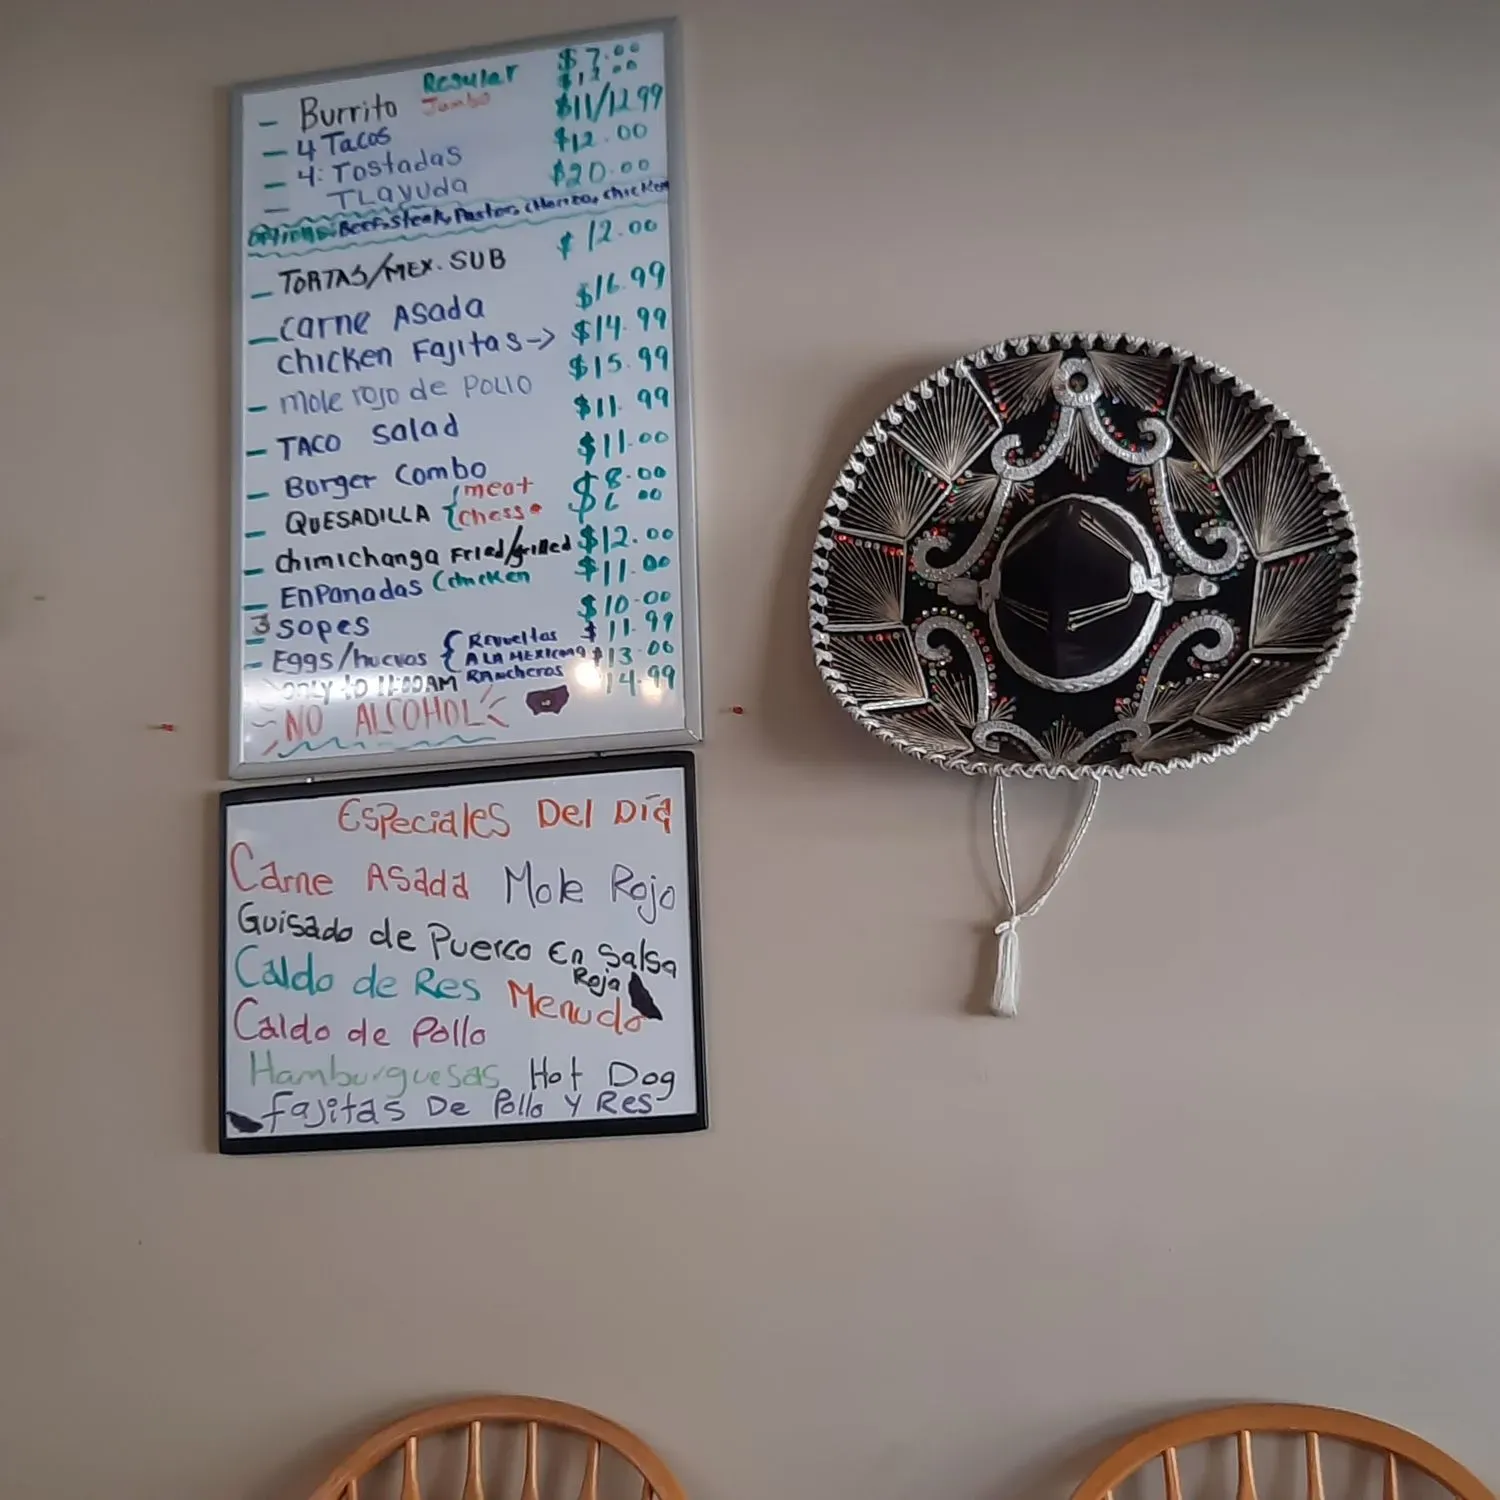 Regular $7.00
- Burrito Jumbo $12.00
- 4 Tacos $11/12.99
- 4: Tostadas $12.00
- TLayuda $20.00
OPTIONS: Beef, Steak, Pastor, Chorizo, chicken
- TORTAS/MEX. SUB $12.00
- Carne Asada $16.99
chicken Fajitas -> $14.99
- mole rojo de POLLO $15.99
- TACO Salad $11.99
- Borger Combo $11.00
QUESADILLA { meat $8.00
chesse $6.00
- chimichanga Fried/grilled $12.00
- EnPanadas (chicken $11.00
3 Sopes $10.00
- Eggs/huevos { Revueltas $11.99
A LA MEXICANA $13.00
only to 11:00AM Rancheros $14.99
NO ALCOHOL
Especiales Del Día
Carne Asada Mole Rojo
Guisado de Puerco En Salsa
Roja
Caldo de Res Menudo
Caldo de Pollo
Hamburguesas Hot Dog
Fajitas De Pollo y Res